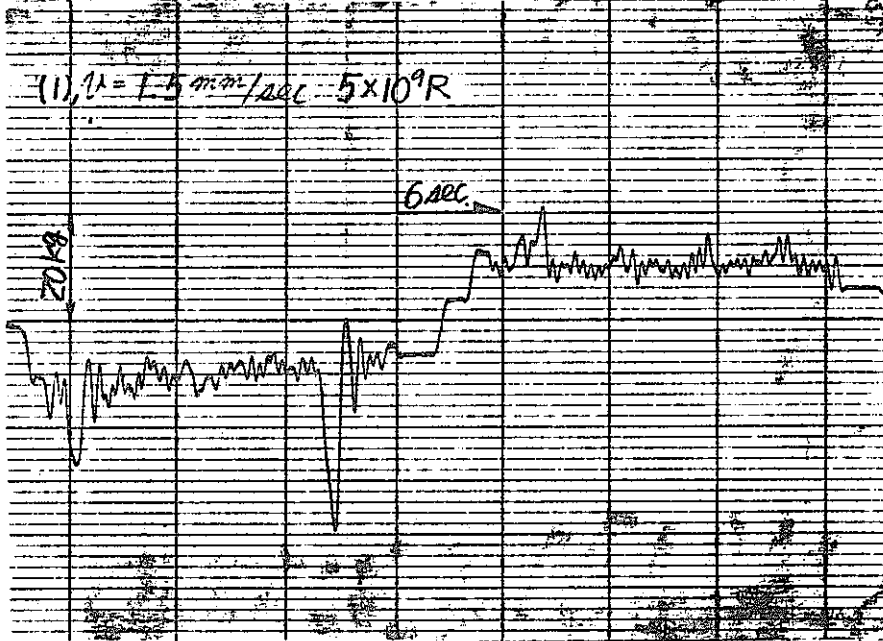 (1), v = 1.5 mm/sec 5×10⁹R
6 sec.
20 kg